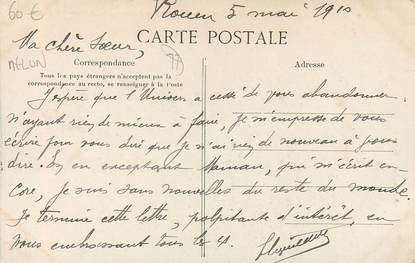 60 €
Rouen 5 mai 1910
Ma chère Sœur,
CARTE POSTALE
MELUN
Correspondance
Adresse
Tous les pays étrangers n'acceptent pas la
correspondance au recto, se renseigner à la Poste
J'espère que l'Univers a cessé de vous abandonner.
N'ayant rien de mieux à faire, je m'empresse de vous
écrire pour vous dire que je n'ai rien de nouveau à vous
dire. En en exceptant Maman, qui m'écrit en-
core, je suis sans nouvelles du reste du monde.
Je termine cette lettre, palpitante d'intérêt, en
vous embrassant tous les 4.